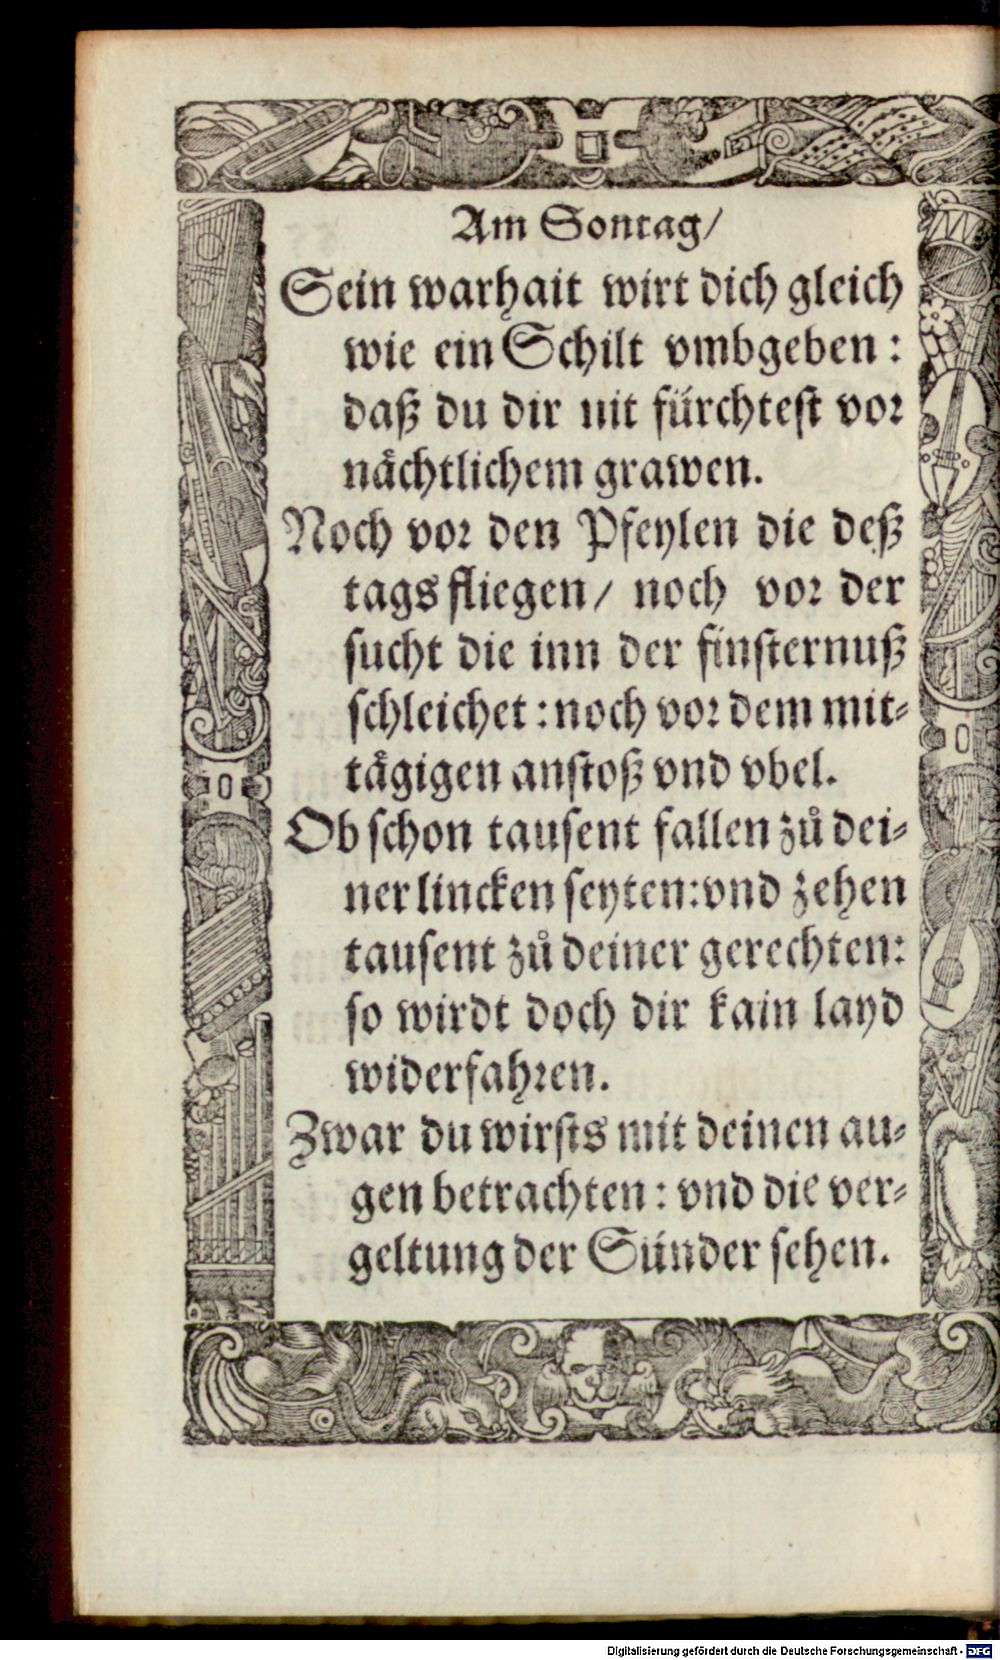 Am Sontag/
Sein warhait wirt dich gleich
wie ein Schilt vmbgeben:
daß du dir nit fürchtest vor
nächtlichem grawen.
Noch vor den Pfeylen die deß
tags fliegen/ noch vor der
sucht die inn der finsternuß
schleichet: noch vor dem mit⸗
tägigen anstoß vnd vbel.
Ob schon tausent fallen zů dei⸗
ner lincken seyten: vnd zehen
tausent zů deiner gerechten:
so wirdt doch dir kain layd
widerfahren.
Zwar du wirsts mit deinen au⸗
gen betrachten: vnd die ver⸗
geltung der Sünder sehen.
Digitalisierung gefördert durch die Deutsche Forschungsgemeinschaft - DFG